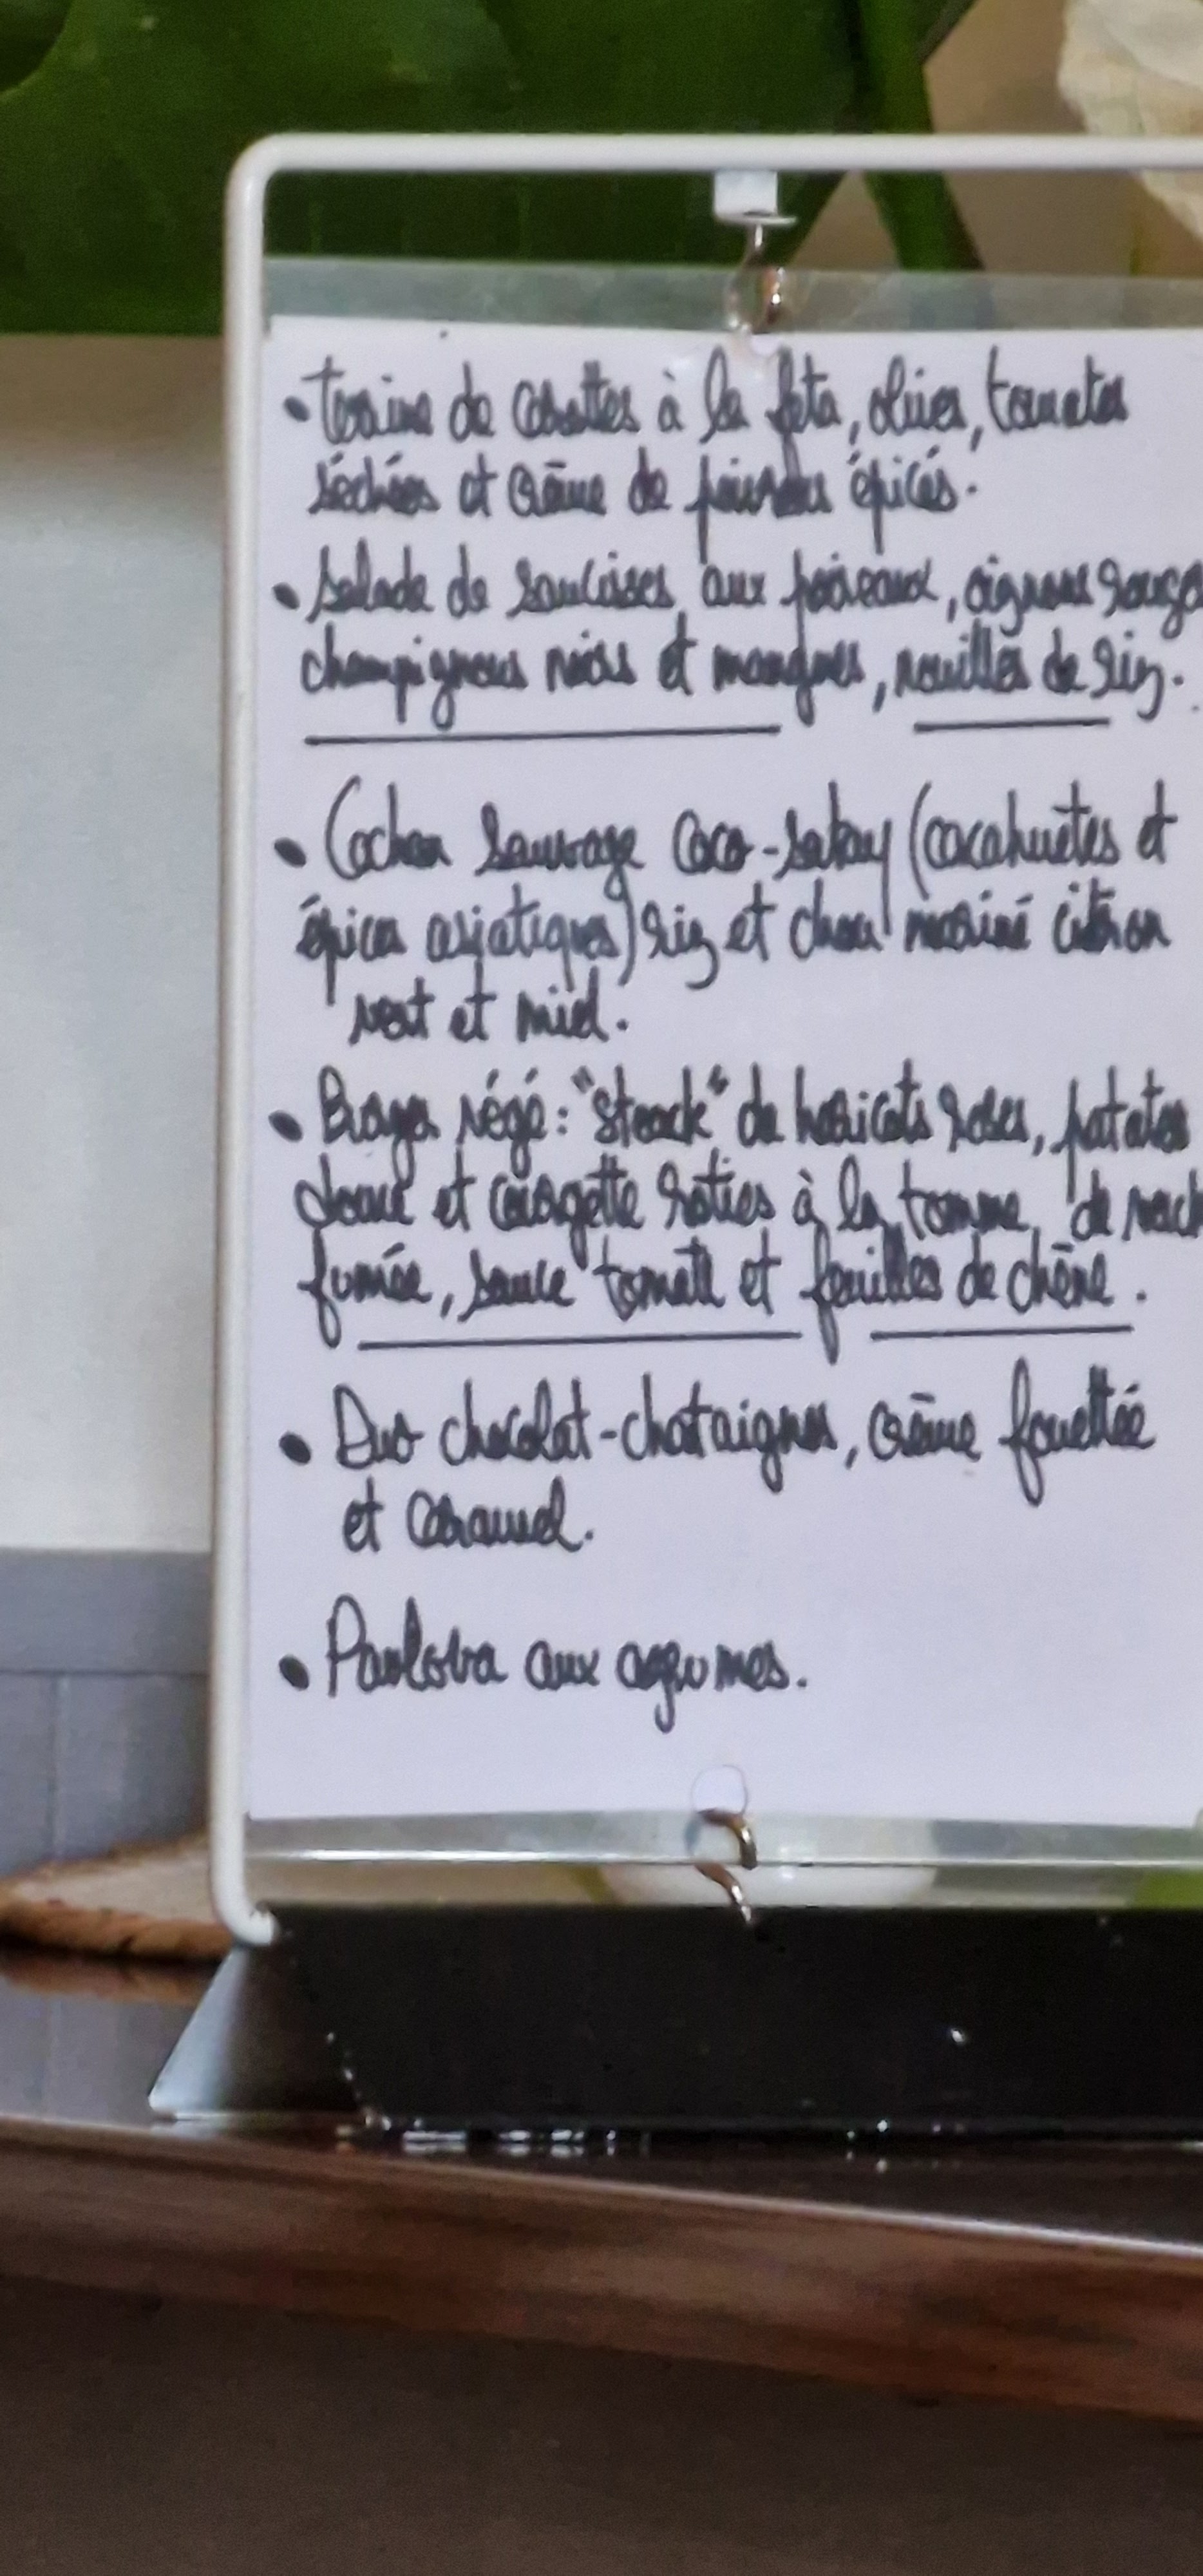 • Terrine de carottes à la feta, olives, tomates
séchées et crème de poivrons épicés.
• Salade de saucisses aux poireaux, oignons rouges
champignons noirs et mangues, nouilles de riz.
• Cochon sauvage coco-satay (cacahuètes et
épices asiatiques) riz et chou mariné citron
vert et miel.
• Burger végé : "steack" de haricots roses, patates
douce et courgette roties à la tomme de vach
fumée, sauce tomate et feuilles de chêne.
• Duo chocolat-chataignes, crème fouettée
et caramel.
• Pavlova aux agrumes.